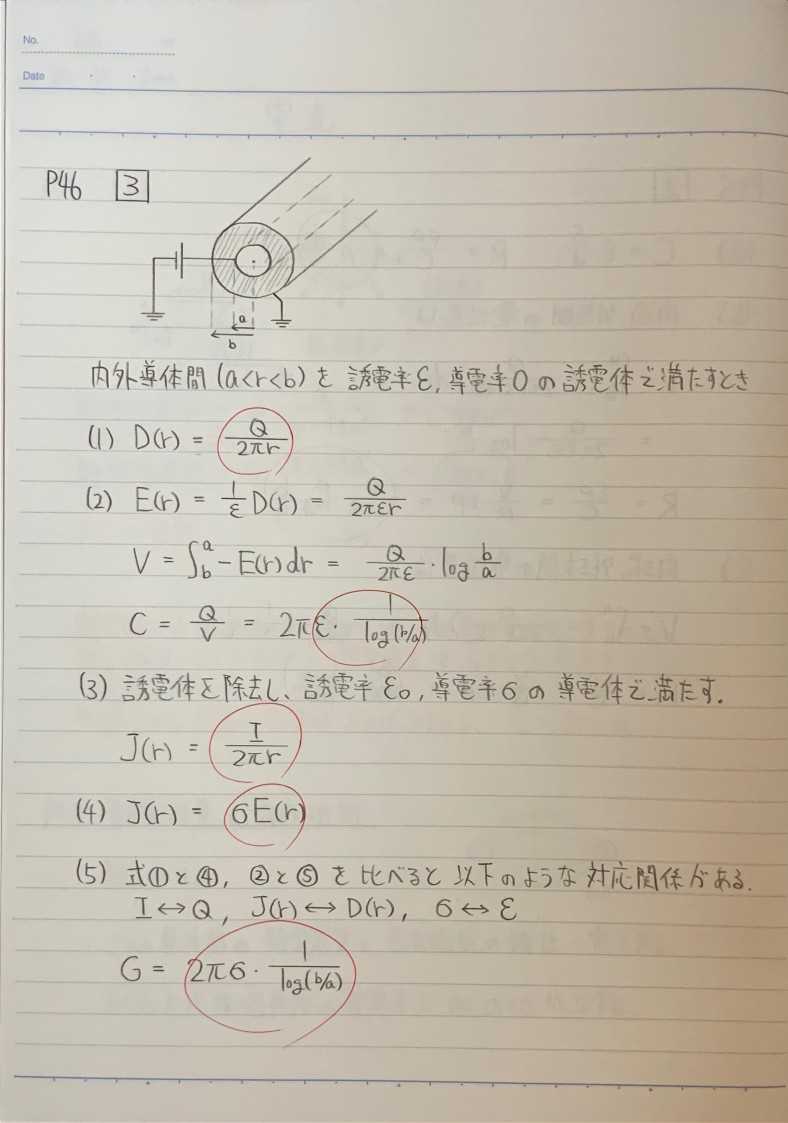 No.
Date
P46 3
a
b
内外導体間 (a<r<b) を 誘電率ε, 導電率0 の誘電体で満たすとき
(1) D(r) = Q/2πr
(2) E(r) = 1/ε D(r) = Q/2πεr
V = ∫_b^a -E(r)dr = Q/2πε · log b/a
C = Q/V = 2πε · 1/log(b/a)
(3) 誘電体を除去し、誘電率 ε₀, 導電率σ の 導電体で満たす.
J(r) = I/2πr
(4) J(r) = σE(r)
(5) 式①と④, ②と⑤ を 比べると 以下のような 対応関係がある.
I↔Q, J(r)↔D(r), σ↔ε
G = 2πσ · 1/log(b/a)